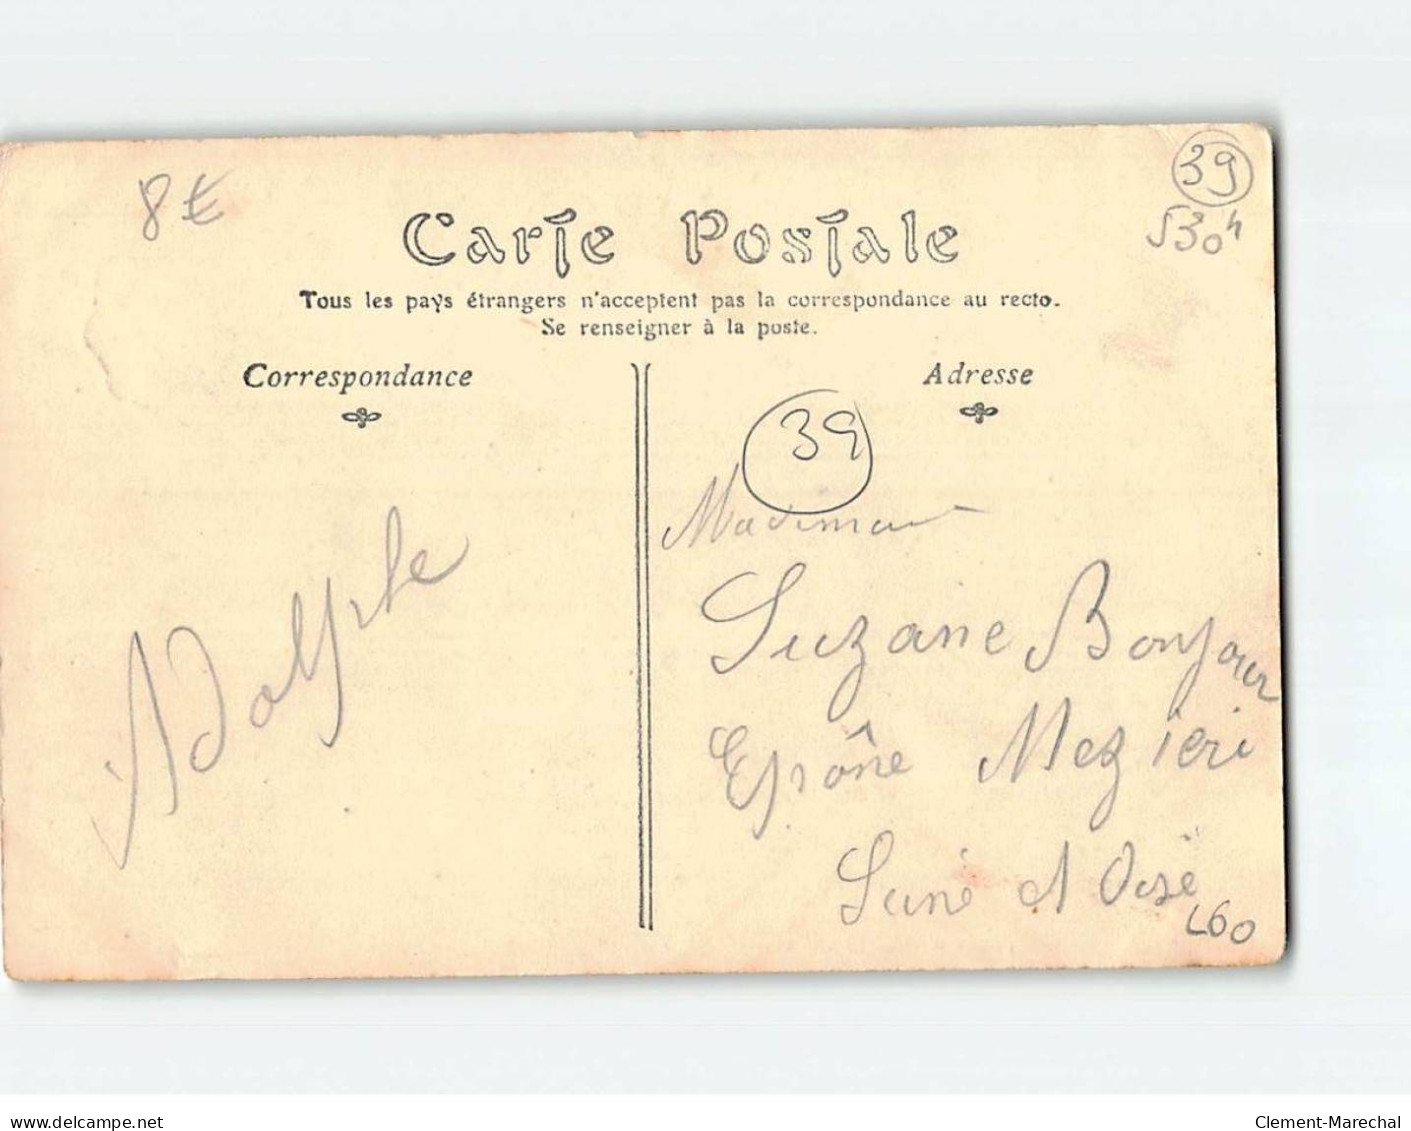 8€
39
5304
Carte Postale
Tous les pays étrangers n'acceptent pas la correspondance au recto.
Se renseigner à la poste.
Correspondance
Adresse
39
Adolphe
Suzane Bonjour
Epône Mezieri
Seine et Oise
L60
www.delcampe.net
Clement-Marechal